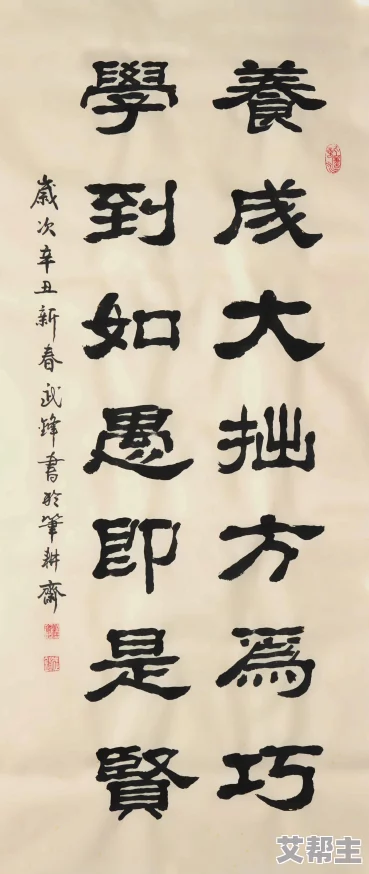 養成大拙方為巧
學到如愚即是賢
歲次辛丑新春武鋒書於筆耕齋
艾帮主